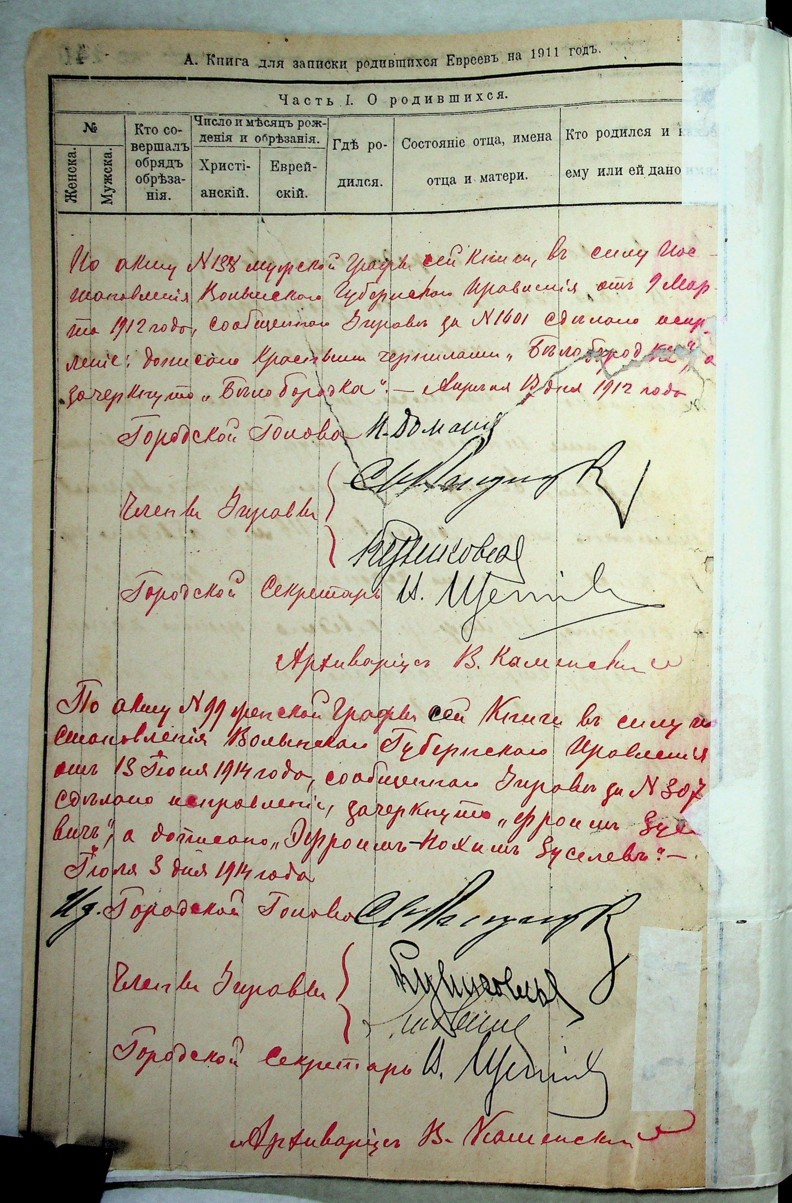 А. Книга для записки родившихся Евреевъ на 1911 годъ.
Часть I. О родившихся.
№
Женска.
Мужска.
Кто со-
вершалъ
обрядъ
обрѣза-
нія.
Число и мѣсяцъ рож-
денія и обрѣзанія.
Христі-
анскій.
Еврей-
скій.
Гдѣ ро-
дился.
Состояніе отца, имена
отца и матери.
Кто родился и
ему или ей дано
По акту №138 мужской графы сей книги, въ силу пос-
тановленія Волынскаго Губернскаго Правленія отъ 9 Мар-
та 1912 года, сообщеннаго Управѣ за №1601 сдѣлано испр-
леніе: дописано красными чернилами „Бѣлобродки", а
зачеркнуто „Бѣлобородка".— Апрѣля 13 дня 1912 года
Городской Голова
Члены Управы
Городской Секретарь И.
Архиваріусъ В. Каменскій
По акту №99 женской графы сей Книги въ силу по
становленія Волынскаго Губернскаго Правленія
отъ 13 Іюня 1914 года, сообщеннаго Управѣ за №307
сдѣлано исправленіе, зачеркнуто „Фроимъ Зусе
вичъ", а дописано „Эфроимъ-Нохимъ Зуселевъ".—
Іюля 3 дня 1914 года
Ид. Городской Голова
Члены Управы
Городской Секретарь И.
Архиваріусъ В. Каменскій